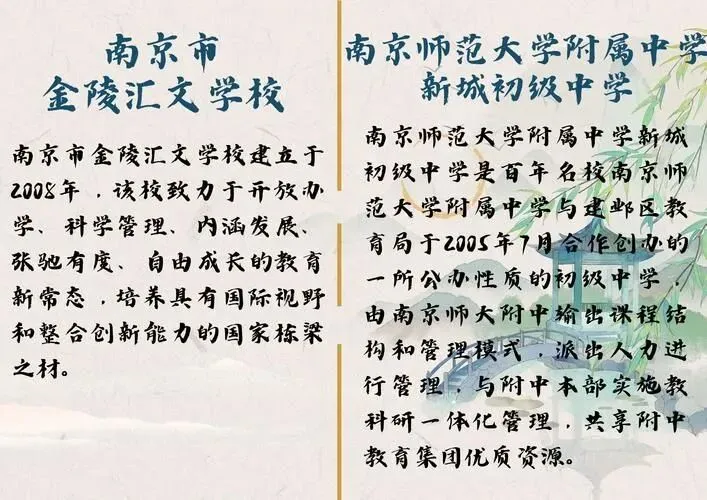 南京市
金陵汇文学校
南京市金陵汇文学校建立于
2008年，该校致力于开放办
学、科学管理、内涵发展、
张驰有度、自由成长的教育
新常态，培养具有国际视野
和整合创新能力的国家栋梁
之材。
南京师范大学附属中学
新城初级中学
南京师范大学附属中学新城
初级中学是百年名校南京师
范大学附属中学与建邺区教
育局于2005年7月合作创办的
一所公办性质的初级中学，
由南京师大附中输出课程结
构和管理模式，派出人力进
行管理，与附中本部实施教
科研一体化管理，共享附中
教育集团优质资源。